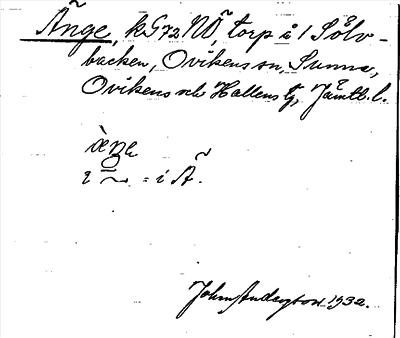 Änge, kG72NÖ, torp å 1 Sölv-
backen, Ovikens sn, Sunne,
Ovikens och Hallens tg, Jämtl. l.
änge
i ~ = i Ä.
John Anderson 1932.